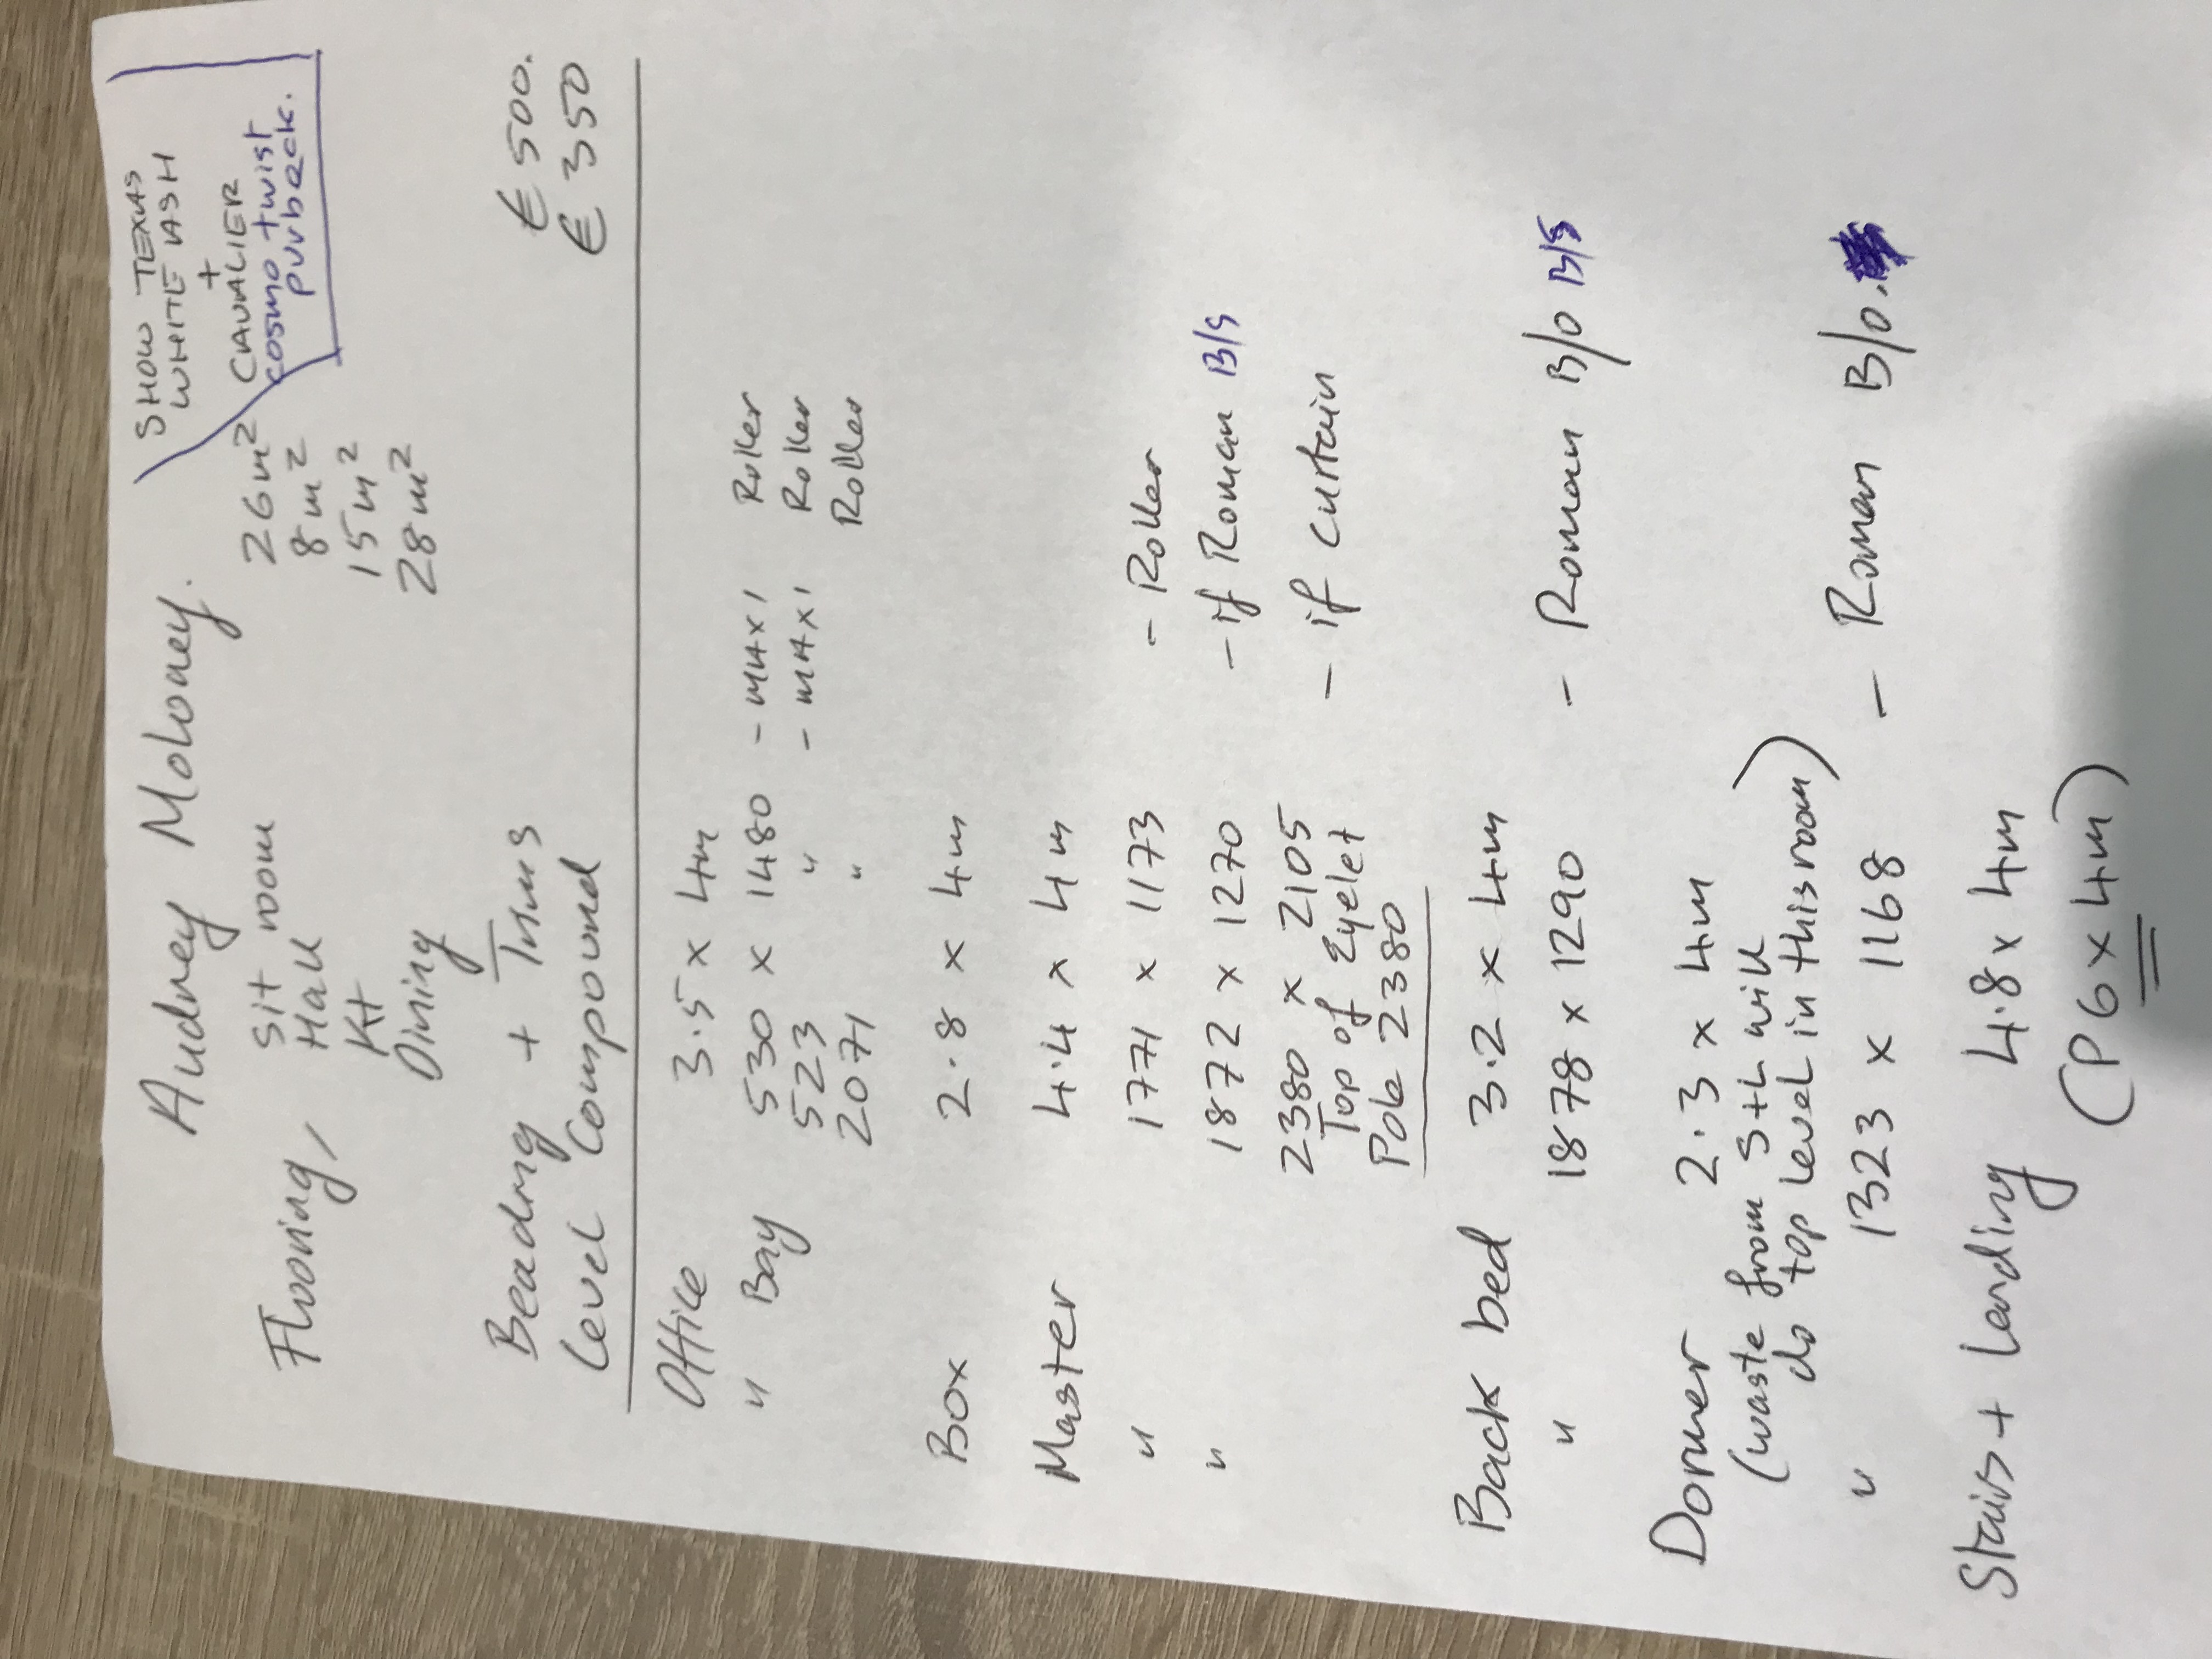 Audney Moloney.
SHOW TEXAS
WHITE WASH
+
CAVALIER
cosmo twist
purbeck.
Flooring, Sit room 26m²
Hall 8m²
Kt 15m²
Dining 28m²
Beading + Trims € 500.
Level Compound € 350
Office 3.5 x 4m
" Bay 530 x 1480 - MAX 1 Roller
523 " - MAX 1 Roller
2071 " Roller
Box 2.8 x 4m
Master 4.4 x 4m
" 1771 x 1173 - Roller
" 1872 x 1270 - if Roman B/S
2380 x 2105 - if curtain
Top of Eyelet
Pole 2380
Back bed 3.2 x 4m
" 1878 x 1290 - Roman B/O B/S
Dormer 2.3 x 4m
(waste from S+L will
do top level in this room)
" 1323 x 1168 - Roman B/O.
Stairs + Landing 4.8 x 4m
(P6 x 4m)